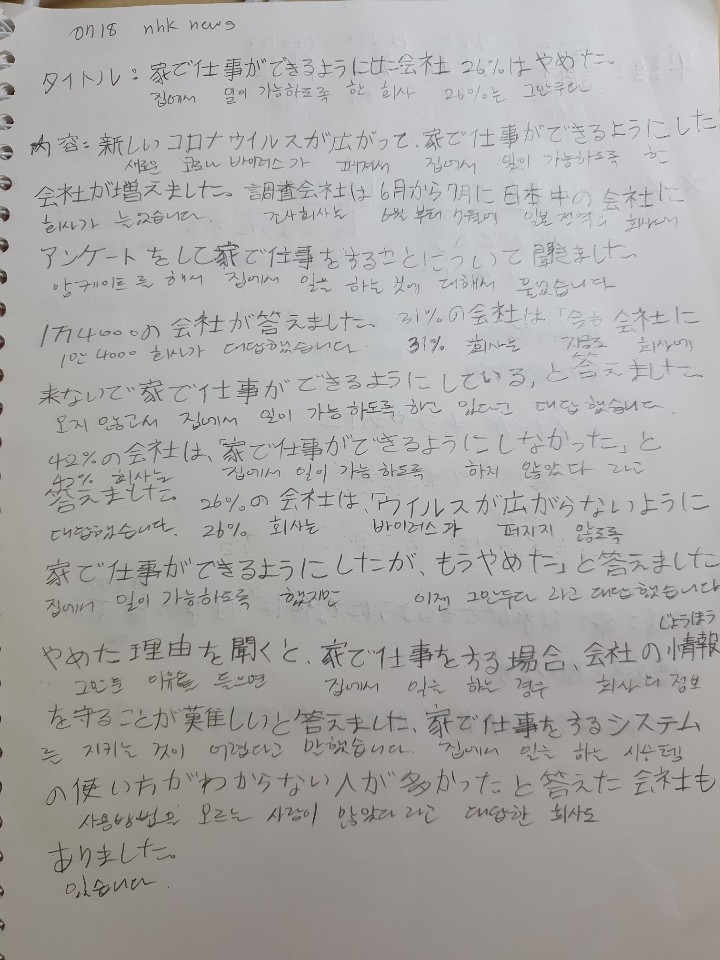 0718 nhk news
タイトル:家で仕事ができるようにした会社 26%はやめた。
집에서 일이 가능하도록 한 회사 26%는 그만두다
内容:新しいコロナウイルスが広がって、家で仕事ができるようにした
새로운 코로나 바이러스가 퍼져서 집에서 일이 가능하도록 한
会社が増えました。調査会社は6月から7月に日本中の会社に
회사가 늘었습니다. 조사회사는 6월부터 7월에 일본 전역의 회사에
アンケートをして家で仕事をすることについて聞きました
앙케이트를 해서 집에서 일을 하는 것에 대해서 물었습니다
1万4000の会社が答えました。31%の会社は「今も会社に
1만 4000 회사가 대답했습니다. 31% 회사는 지금도 회사에
来ないで家で仕事ができるようにしている」と答えました。
오지 않고서 집에서 일이 가능하도록 하고 있다고 대답했습니다.
42%の会社は、家で仕事ができるようにしなかった」と
42% 회사는 집에서 일이 가능하도록 하지 않았다 라고
答えました。26%の会社は、「ウイルスが広がらないように
대답했습니다. 26% 회사는 바이러스가 퍼지지 않도록
家で仕事ができるようにしたが、もうやめた」と答えました
집에서 일이 가능하도록 했지만 이젠 그만두다 라고 대답했습니다
じょうほう
やめた理由を聞くと、家で仕事をする場合、会社の情報
그만둔 이유를 들으면 집에서 일을 하는 경우 회사의 정보
を守ることが難しいと答えました、家で仕事をするシステム
를 지키는 것이 어렵다고 말했습니다. 집에서 일을 하는 시스템
の使い方がわからない人が多かったと答えた会社も
사용방법을 모르는 사람이 많았다 라고 대답한 회사도
ありました。
있습니다.